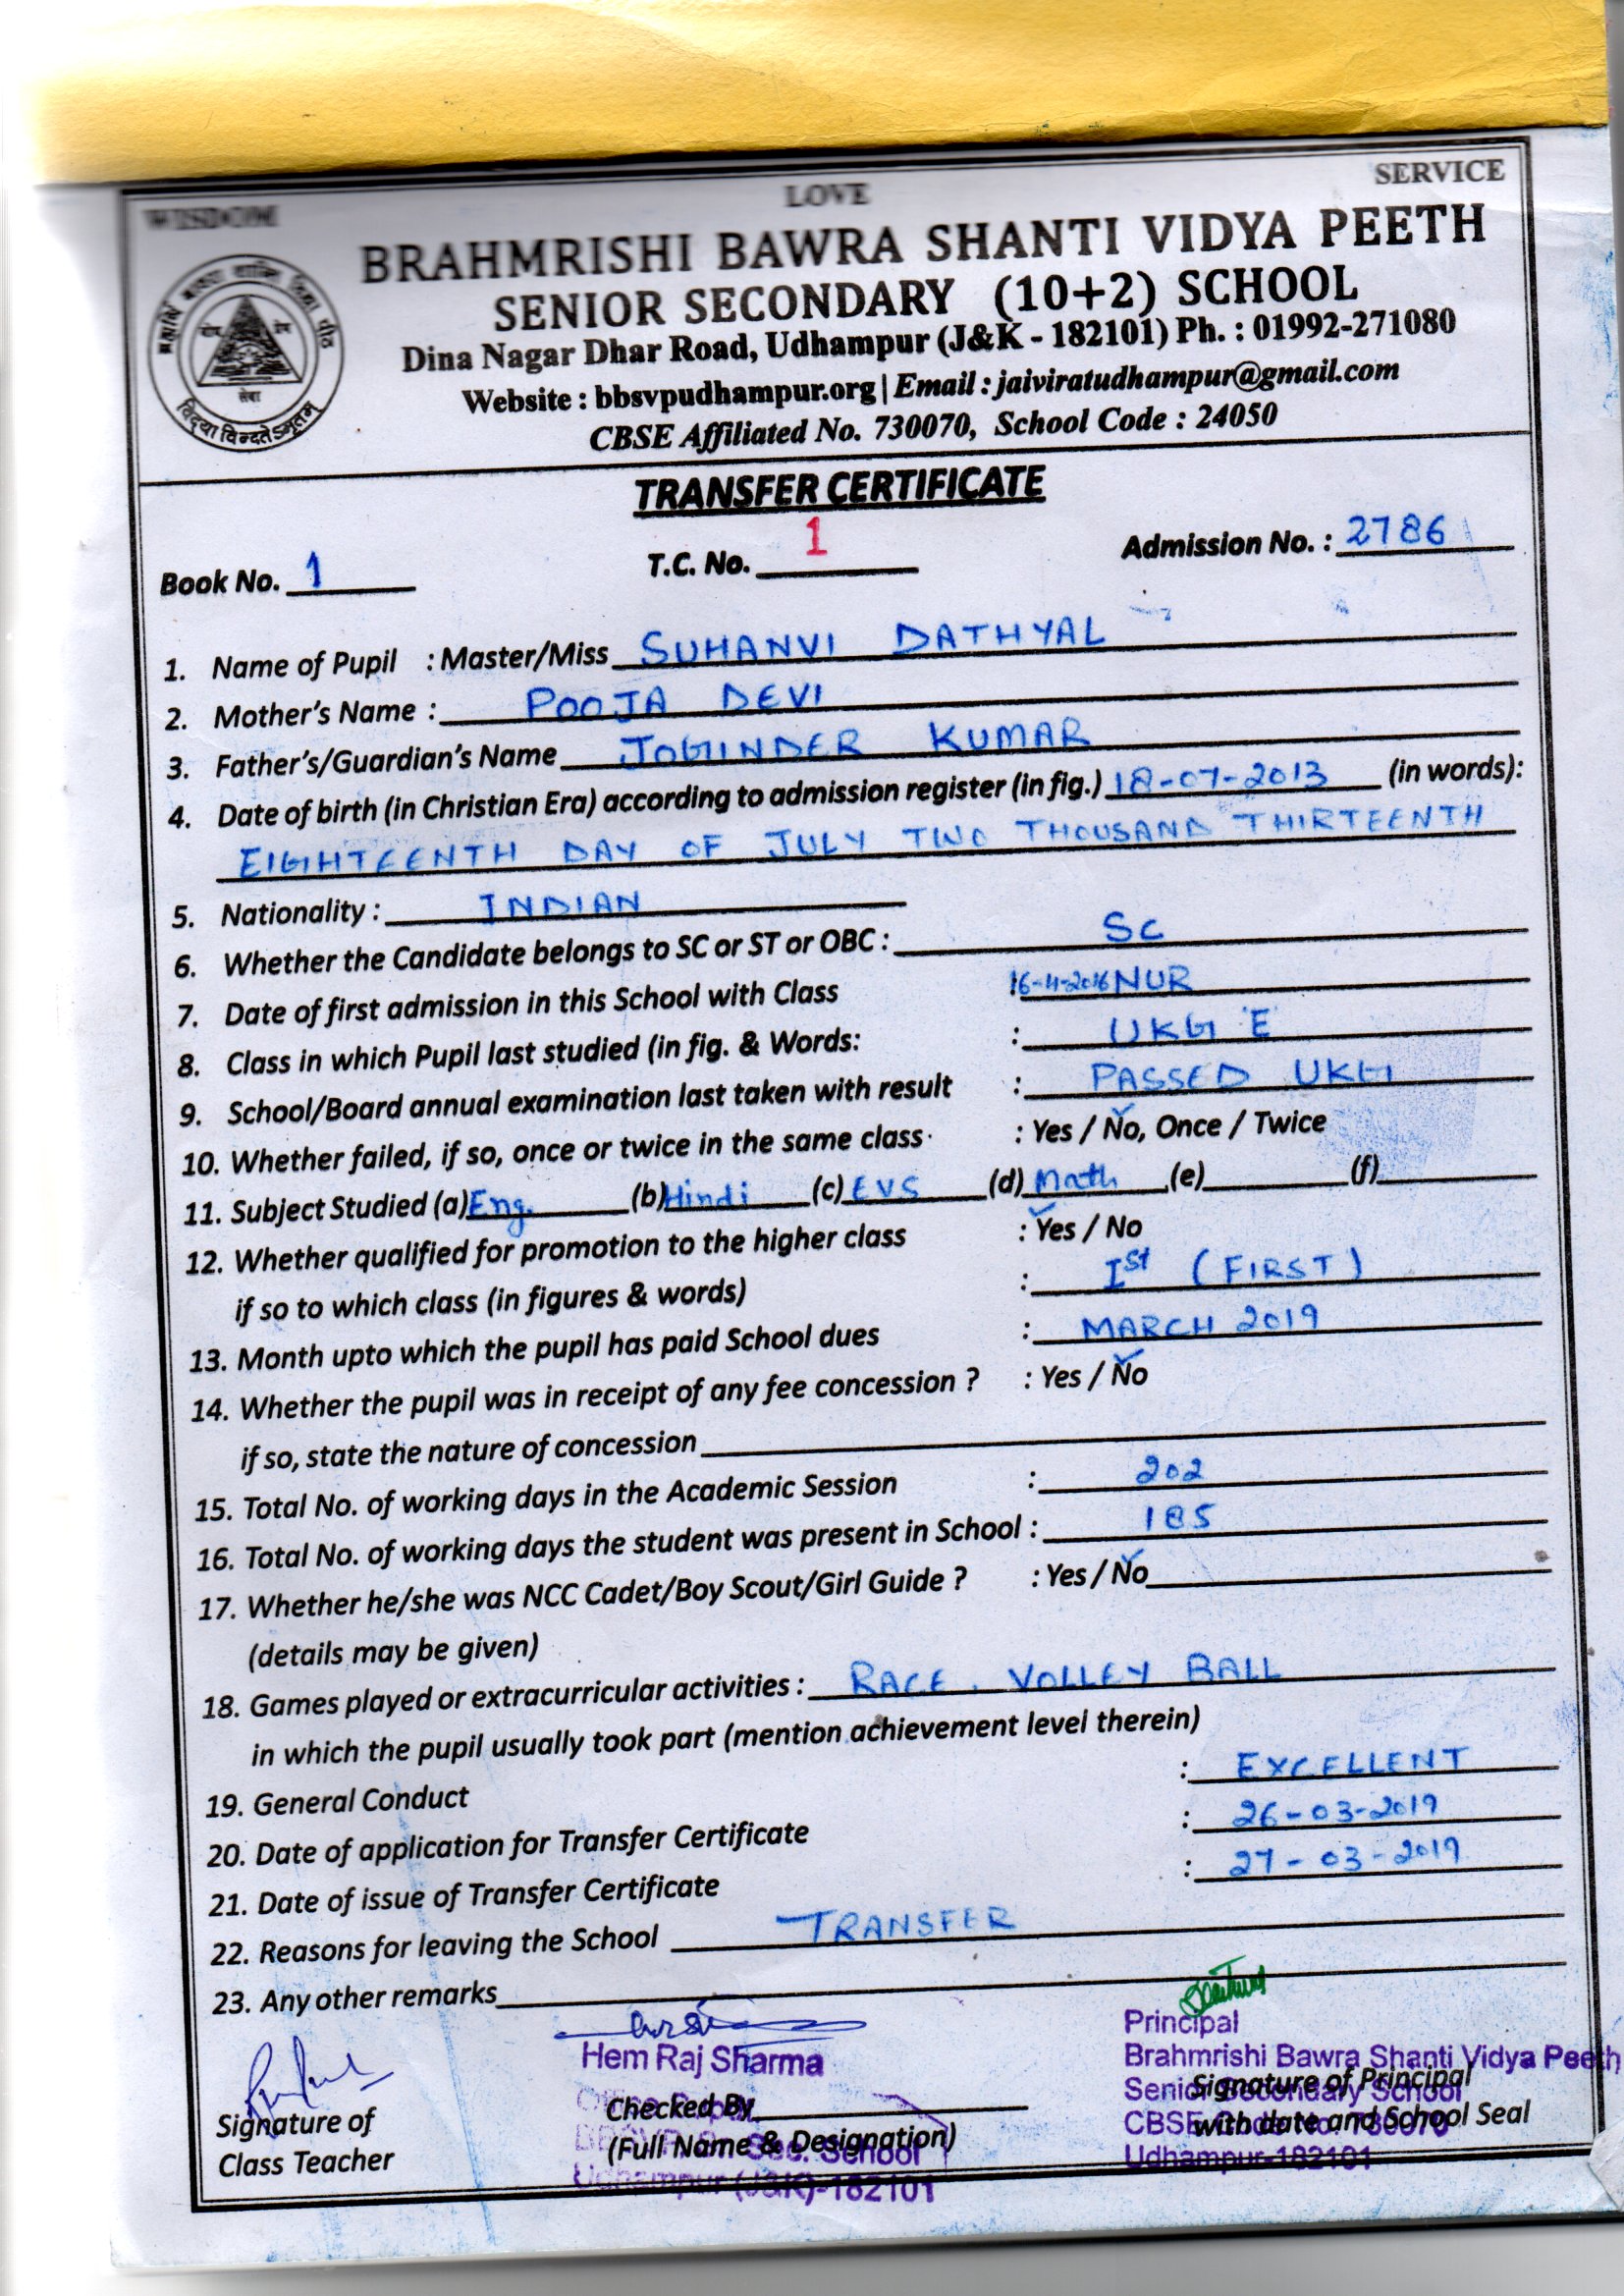 WISDOM LOVE SERVICE
BRAHMRISHI BAWRA SHANTI VIDYA PEETH
SENIOR SECONDARY (10+2) SCHOOL
Dina Nagar Dhar Road, Udhampur (J&K - 182101) Ph. : 01992-271080
Website : bbsvpudhampur.org | Email : jaiviratudhampur@gmail.com
CBSE Affiliated No. 730070, School Code : 24050
सेवा
TRANSFER CERTIFICATE
Book No. 1 T.C. No. 1 Admission No. : 2786
1. Name of Pupil : Master/Miss SUHANVI DATHYAL
2. Mother's Name : POOJA DEVI
3. Father's/Guardian's Name JOGINDER KUMAR
4. Date of birth (in Christian Era) according to admission register (in fig.) 18-07-2013 (in words):
EIGHTEENTH DAY OF JULY TWO THOUSAND THIRTEENTH
5. Nationality : INDIAN
6. Whether the Candidate belongs to SC or ST or OBC : SC
7. Date of first admission in this School with Class : 16-4-2016 NUR
8. Class in which Pupil last studied (in fig. & Words: : UKG 'E
9. School/Board annual examination last taken with result : PASSED UKG
10. Whether failed, if so, once or twice in the same class : Yes / No, Once / Twice
11. Subject Studied (a) Eng. (b) Hindi (c) EVS (d) Math (e) (f)
12. Whether qualified for promotion to the higher class : Yes / No
if so to which class (in figures & words) : Ist (FIRST)
13. Month upto which the pupil has paid School dues : MARCH 2019
14. Whether the pupil was in receipt of any fee concession ? : Yes / No
if so, state the nature of concession
15. Total No. of working days in the Academic Session : 202
16. Total No. of working days the student was present in School : 185
17. Whether he/she was NCC Cadet/Boy Scout/Girl Guide ? : Yes / No
(details may be given)
18. Games played or extracurricular activities : RACE, VOLLEY BALL
in which the pupil usually took part (mention achievement level therein)
19. General Conduct : EXCELLENT
20. Date of application for Transfer Certificate : 26-03-2019
21. Date of issue of Transfer Certificate : 27-03-2019
22. Reasons for leaving the School TRANSFER
23. Any other remarks
Hem Raj Sharma
Principal
Brahmrishi Bawra Shanti Vidya Peeth
Senior Secondary School
Signature of Principal
Checked By
Signature of
Class Teacher
(Full Name & Designation)
Sec. School
Udhampur (J&K)-182101
with date and School Seal
Udhampur-182101